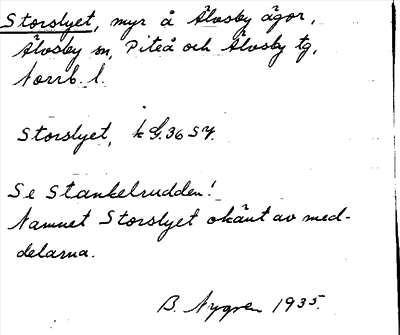 Storslyet, myr å Älvsby ägor,
Älvsby sn, Piteå och Älvsby tg,
Norrb. l.
Storslyet, k G.36 SY.
Se Stankelrudden!
Namnet Storslyet okänt av med-
delarna.
B. Nygren 1935.